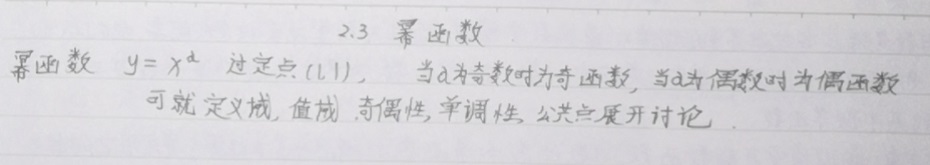 2.3 幂函数
幂函数 y=x^α 过定点(1,1), 当α为奇数时为奇函数, 当α为偶数时为偶函数
可就定义域, 值域, 奇偶性, 单调性, 公共点展开讨论.